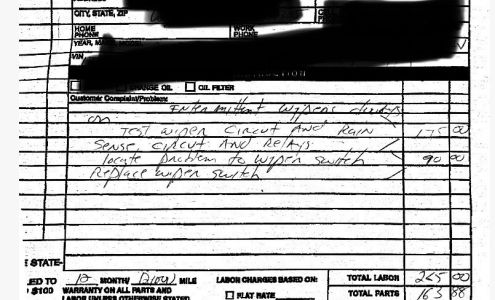 CITY, STATE, ZIP
HOME PHONE
WORK PHONE
YEAR, MAKE, MODEL
VIN
CHANGE OIL OIL FILTER
Customer Complaint/Problem:
Intermittent wipers always
on
Test wiper Circut And Rain 175 00
Sense, circut And Relays
locate problem to wiper switch 90 00
Replace wiper switch
E STATE-
ED TO 12 MONTH/ MILE LABOR CHARGES BASED ON: TOTAL LABOR 265 00
$100 WARRANTY ON ALL PARTS AND FLAT RATE TOTAL PARTS 163 88
LABOR UNLESS OTHERWISE STATED